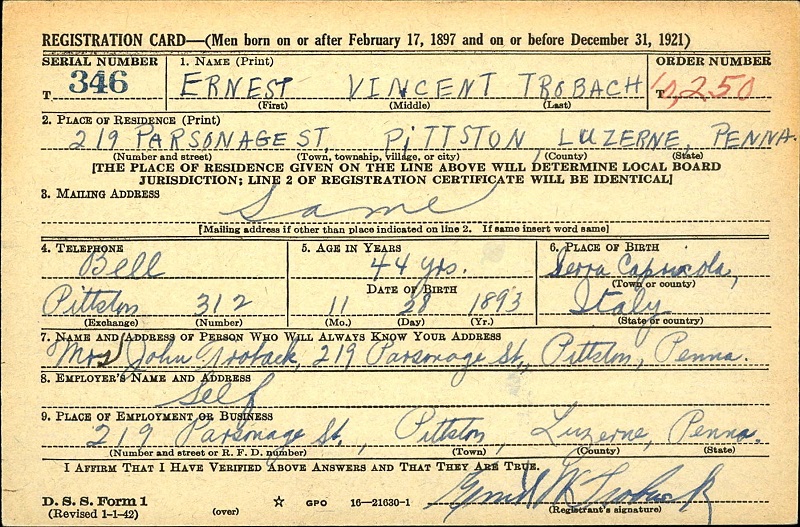 REGISTRATION CARD—(Men born on or after February 17, 1897 and on or before December 31, 1921)
SERIAL NUMBER 1. NAME (Print) ORDER NUMBER
T 346 ERNEST VINCENT TROBACH T 10,250
(First) (Middle) (Last)
2. PLACE OF RESIDENCE (Print)
219 PARSONAGE ST. PITTSTON, LUZERNE, PENNA.
(Number and street) (Town, township, village, or city) (County) (State)
[THE PLACE OF RESIDENCE GIVEN ON THE LINE ABOVE WILL DETERMINE LOCAL BOARD
JURISDICTION; LINE 2 OF REGISTRATION CERTIFICATE WILL BE IDENTICAL]
3. MAILING ADDRESS
Same
[Mailing address if other than place indicated on line 2. If same insert word same]
4. TELEPHONE 5. AGE IN YEARS 6. PLACE OF BIRTH
Bell 44 yrs. Serra Capriola,
DATE OF BIRTH (Town or county)
Pittston 312 11 28 1893 Italy
(Exchange) (Number) (Mo.) (Day) (Yr.) (State or country)
7. NAME AND ADDRESS OF PERSON WHO WILL ALWAYS KNOW YOUR ADDRESS
Mrs John Troback, 219 Parsonage St., Pittston, Penna.
8. EMPLOYER'S NAME AND ADDRESS
Self
9. PLACE OF EMPLOYMENT OR BUSINESS
219 Parsonage St., Pittston, Luzerne, Penna.
(Number and street or R. F. D. number) (Town) (County) (State)
I AFFIRM THAT I HAVE VERIFIED ABOVE ANSWERS AND THAT THEY ARE TRUE.
D. S. S. Form 1 ☆ GPO 16—21630-1
(Revised 1-1-42) (over) (Registrant's signature)